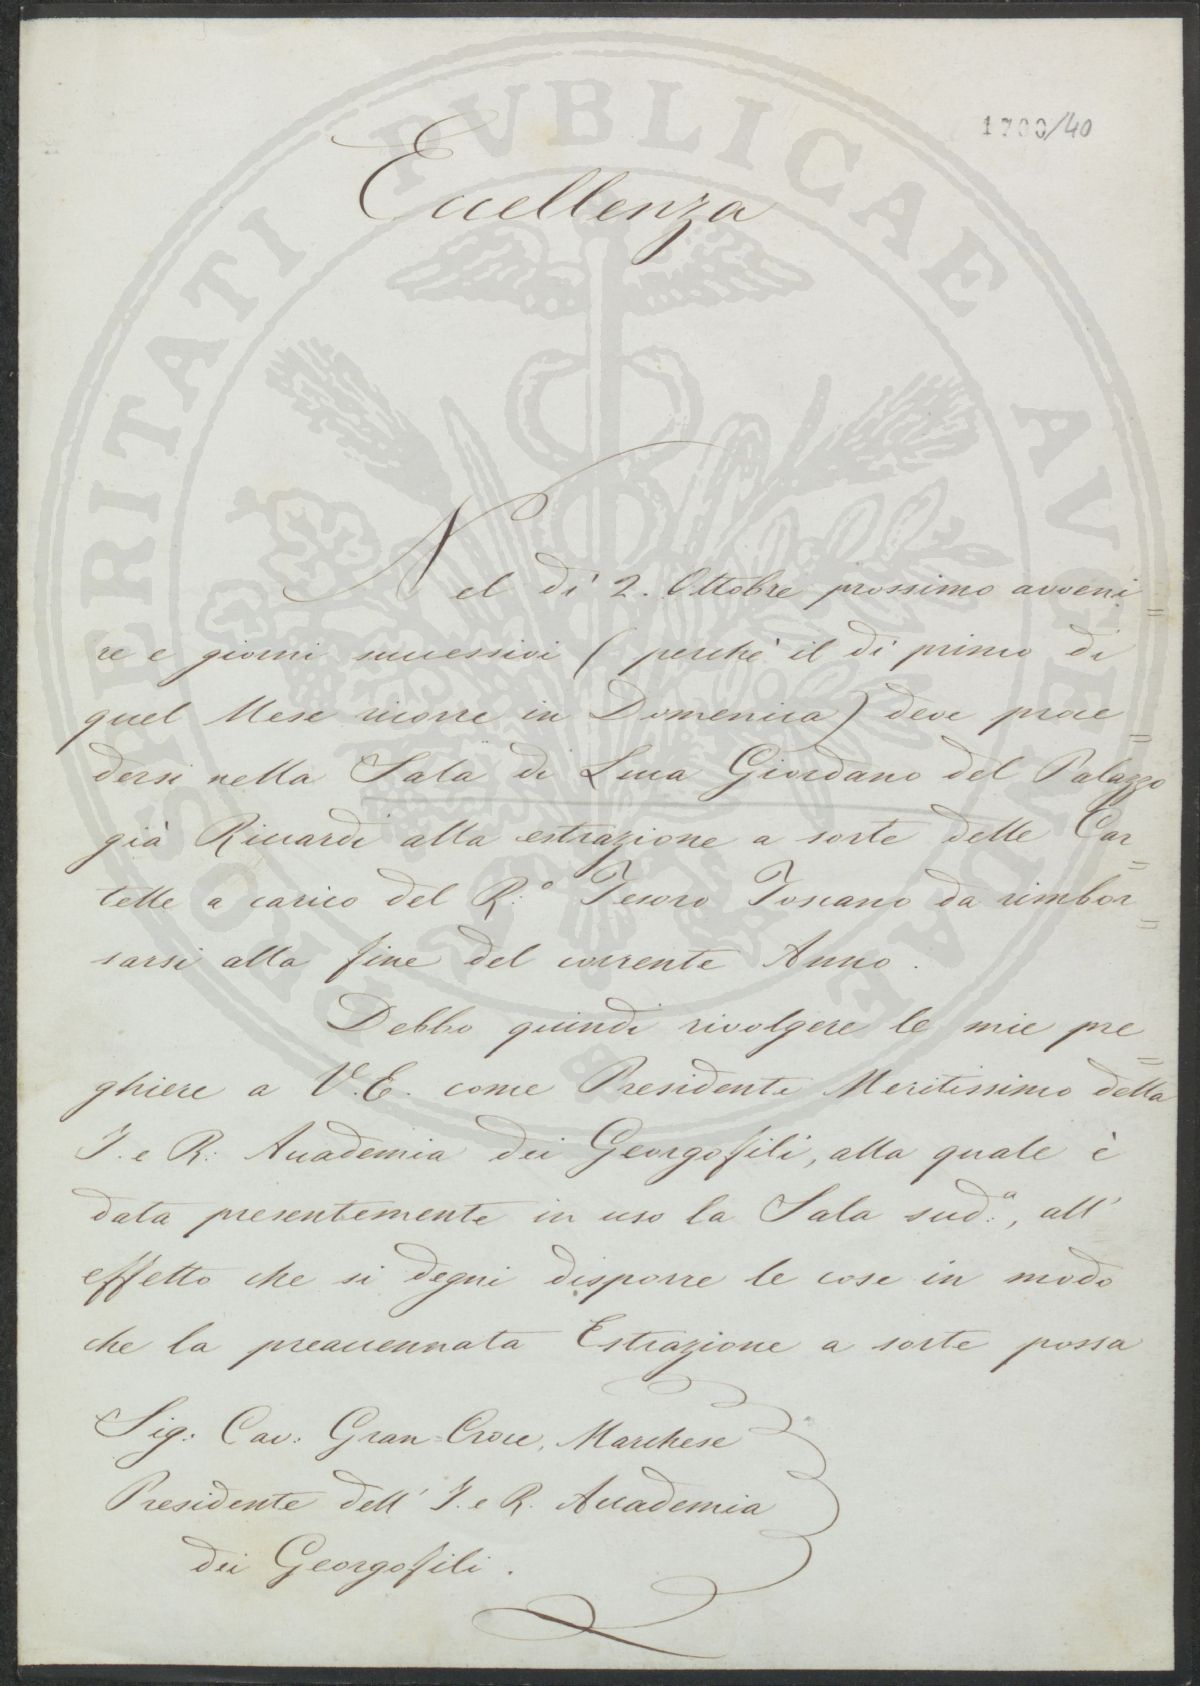 1700/40
PROSPERITATI PVBLICAE AVGENDAE
Eccellenza
Nel dì 2. Ottobre prossimo avveni=
re e giorni successivi (perchè il dì primo di
quel Mese ricorre in Domenica) deve proce=
dersi nella Sala di Luca Giordano del Palazzo
già Riccardi alla estrazione a sorte delle Car=
telle a carico del R.º Tesoro Toscano da rimbor=
sarsi alla fine del corrente Anno.
Debbo quindi rivolgere le mie pre=
ghiere a V.E. come Presidente Meritissimo della
I. e R: Accademia dei Georgofili, alla quale è
data presentemente in uso la Sala sud.ª, all'
effetto che si degni disporre le cose in modo
che la preaccennata Estrazione a sorte possa
Sig: Cav: Gran-Croce, Marchese
Presidente dell' I. e R. Accademia
dei Georgofili.